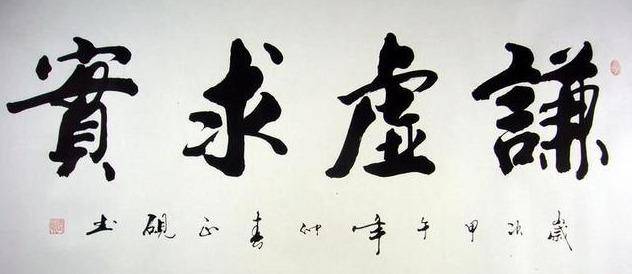 謙虛求實
歲次甲午年仲春正硯書